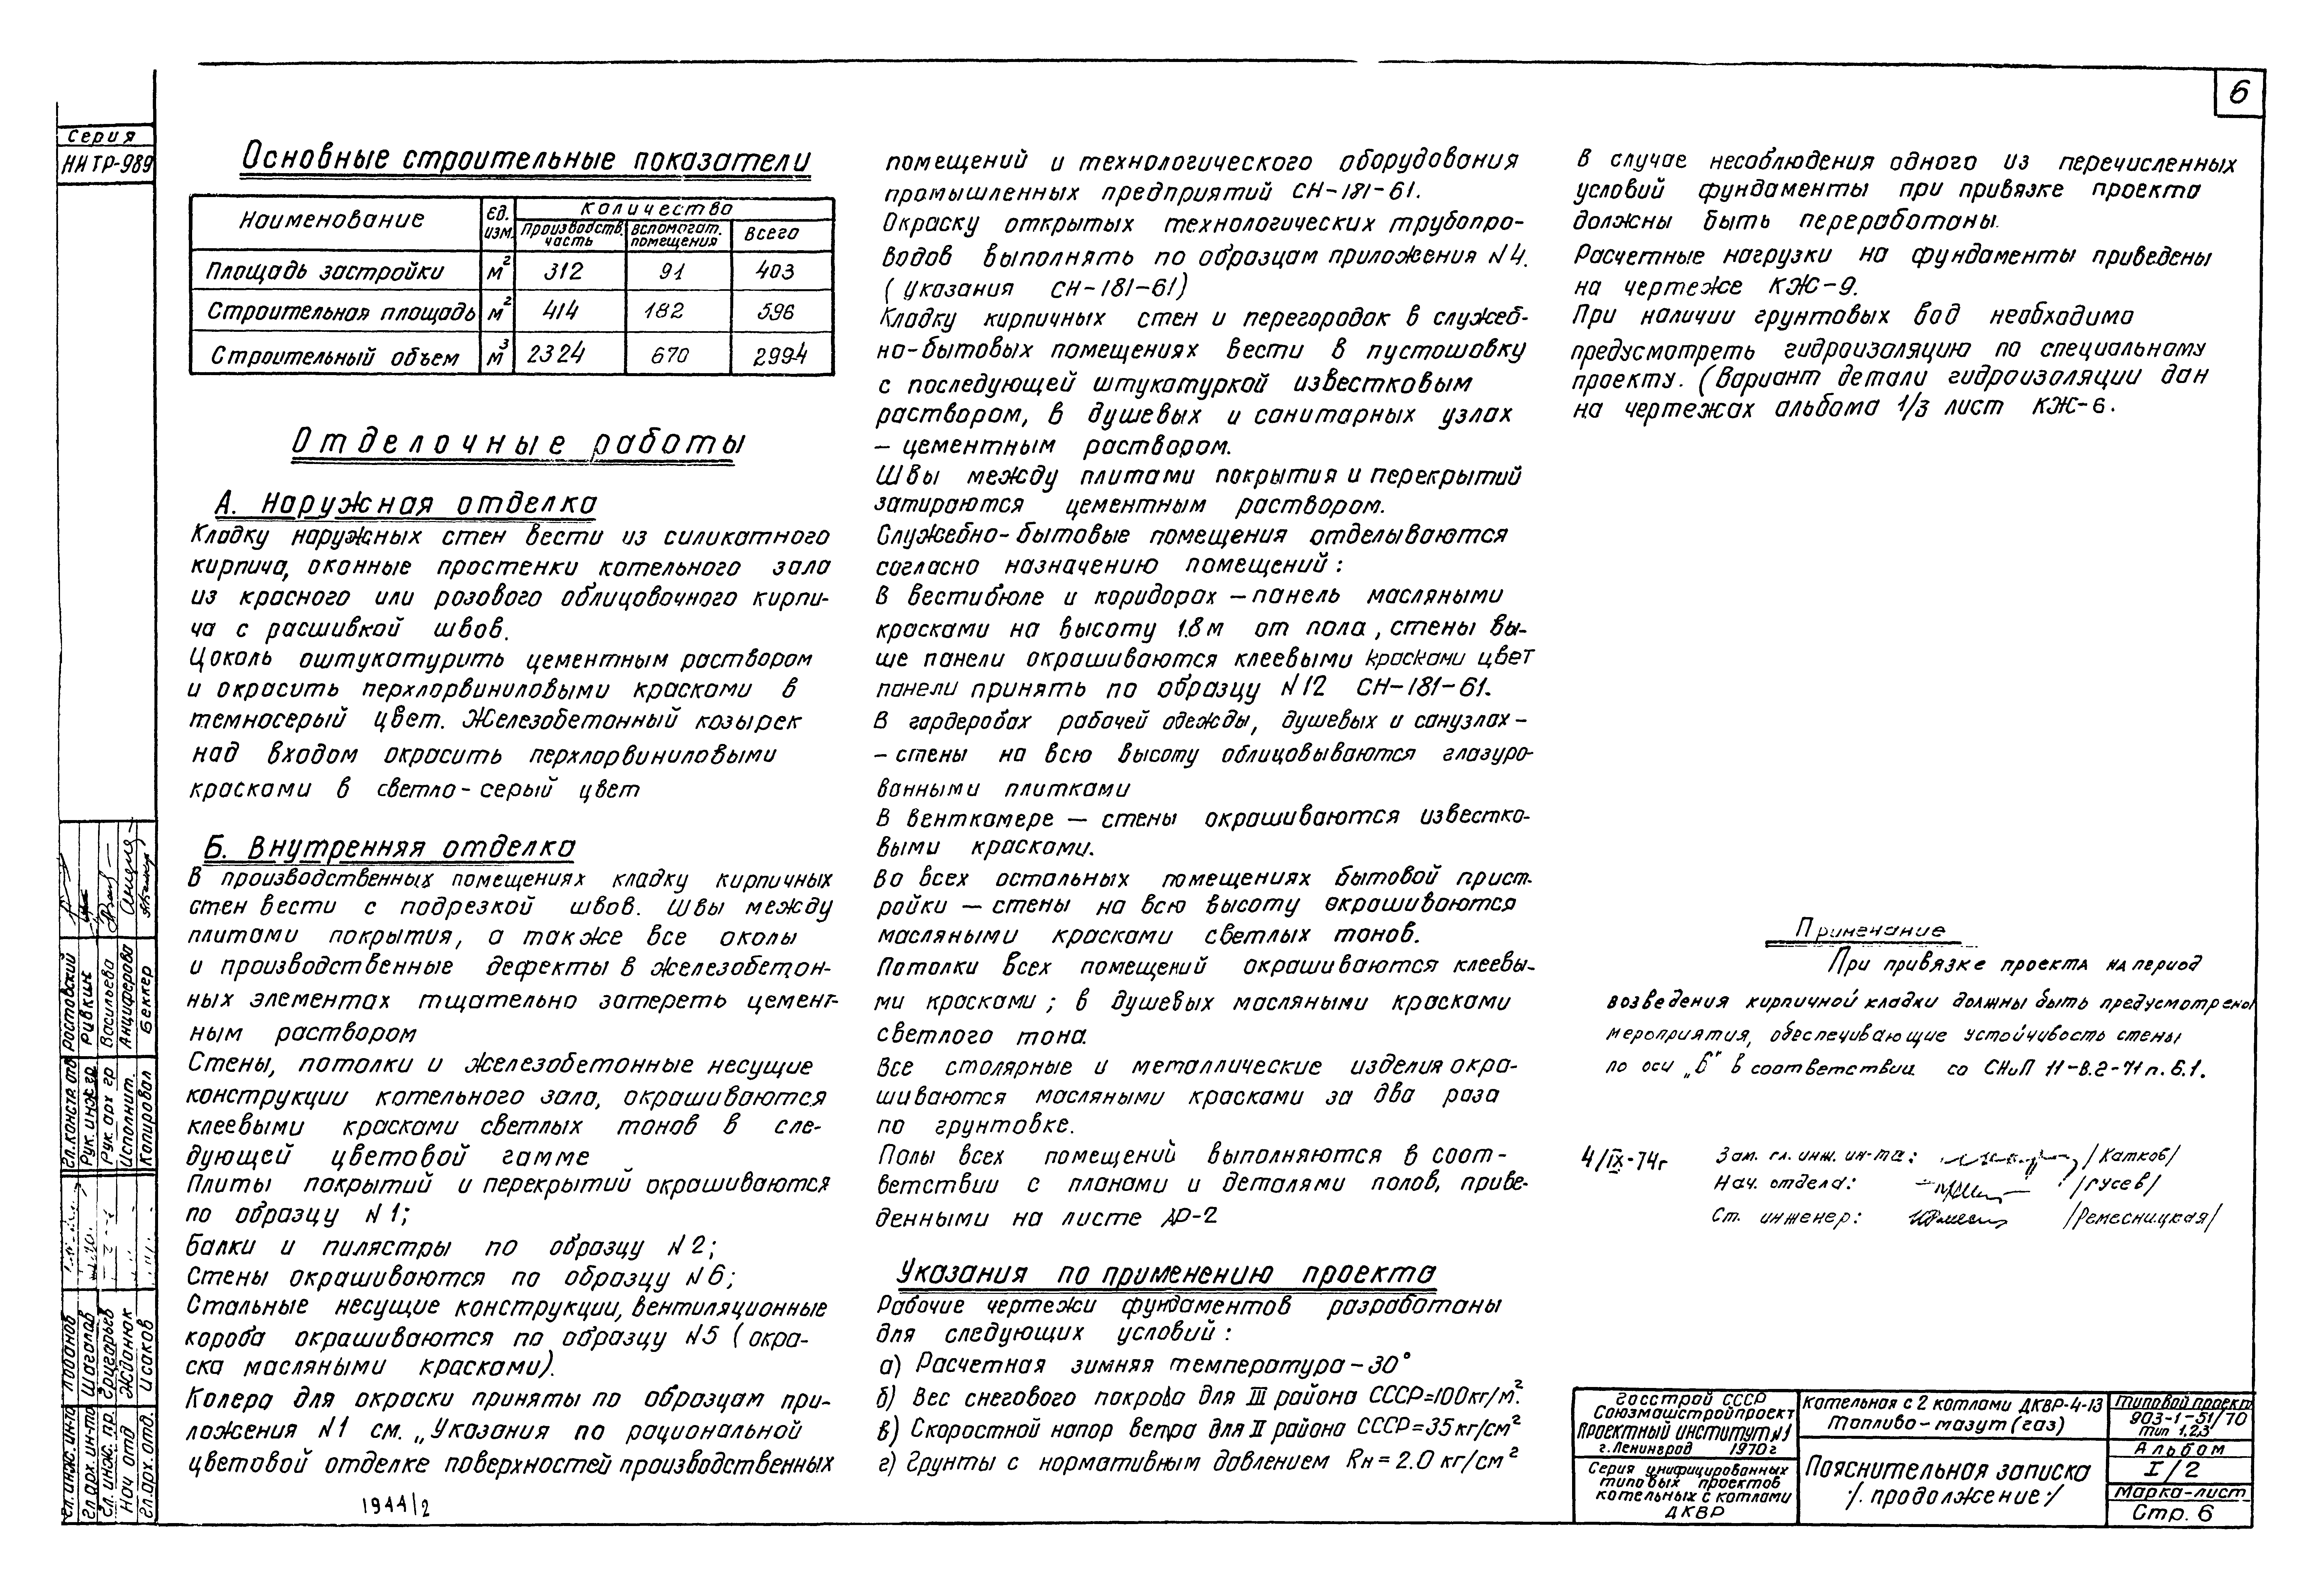 6
Серия
НИТР-989
Основные строительные показатели
Наименование | Ед. изм. | Количество
Производств. часть | Вспомогат. помещения | Всего
Площадь застройки | м² | 312 | 91 | 403
Строительная площадь | м² | 414 | 182 | 596
Строительный объем | м³ | 2324 | 670 | 2994
Отделочные работы
А. Наружная отделка
Кладку наружных стен вести из силикатного
кирпича, оконные простенки котельного зала
из красного или розового облицовочного кирпи-
ча с расшивкой швов.
Цоколь оштукатурить цементным раствором
и окрасить перхлорвиниловыми красками в
темносерый цвет. Железобетонный козырек
над входом окрасить перхлорвиниловыми
красками в светло-серый цвет
Б. Внутренняя отделка
В производственных помещениях кладку кирпичных
стен вести с подрезкой швов. Швы между
плитами покрытия, а также все околы
и производственные дефекты в железобетон-
ных элементах тщательно затереть цемент-
ным раствором
Стены, потолки и железобетонные несущие
конструкции котельного зала, окрашиваются
клеевыми красками светлых тонов в сле-
дующей цветовой гамме
Плиты покрытий и перекрытий окрашиваются
по образцу N1;
балки и пилястры по образцу N2;
Стены окрашиваются по образцу N6;
Стальные несущие конструкции, вентиляционные
короба окрашиваются по образцу N5 (окра-
ска масляными красками).
Колера для окраски приняты по образцам при-
ложения N1 см. „Указания по рациональной
цветовой отделке поверхностей производственных
1944/2
помещений и технологического оборудования
промышленных предприятий СН-181-61.
Окраску открытых технологических трубопро-
водов выполнять по образцам приложения N4.
(указания СН-181-61)
Кладку кирпичных стен и перегородок в служеб-
но-бытовых помещениях вести в пустошовку
с последующей штукатуркой известковым
раствором, в душевых и санитарных узлах
– цементным раствором.
Швы между плитами покрытия и перекрытий
затираются цементным раствором.
Служебно-бытовые помещения отделываются
согласно назначению помещений:
В вестибюле и коридорах – панель масляными
красками на высоту 1.8 м от пола, стены вы-
ше панели окрашиваются клеевыми красками цвет
панели принять по образцу N12 СН-181-61.
В гардеробах рабочей одежды, душевых и санузлах –
– стены на всю высоту облицовываются глазуро-
ванными плитками
В венткамере – стены окрашиваются известко-
выми красками.
Во всех остальных помещениях бытовой прист-
ройки – стены на всю высоту окрашиваются
масляными красками светлых тонов.
Потолки всех помещений окрашиваются клеевы-
ми красками; в душевых масляными красками
светлого тона.
Все столярные и металлические изделия окра-
шиваются масляными красками за два раза
по грунтовке.
Полы всех помещений выполняются в соот-
ветствии с планами и деталями полов, приве-
денными на листе АР-2
Указания по применению проекта
Рабочие чертежи фундаментов разработаны
для следующих условий:
а) Расчетная зимняя температура -30°
б) Вес снегового покрова для III района СССР=100кг/м².
в) Скоростной напор ветра для II района СССР=35кг/см²
г) Грунты с нормативным давлением Rн=2.0 кг/см²
В случае несоблюдения одного из перечисленных
условий фундаменты при привязке проекта
должны быть переработаны.
Расчетные нагрузки на фундаменты приведены
на чертеже КЖ-9.
При наличии грунтовых вод необходимо
предусмотреть гидроизоляцию по специальному
проекту. (Вариант детали гидроизоляции дан
на чертежах альбома 1/3 лист КЖ-6.
Примечание
При привязке проекта на период
возведения кирпичной кладки должны быть предусмотрены
мероприятия, обеспечивающие устойчивость стены
по оси „Б" в соответствии со СНиП II-В.2-71 п. 6.1.
4/IX-74г
Зам. гл. инж. ин-та: /Катков/
Нач. отдела: /Гусев/
Ст. инженер: /Ремесницкая/
Госстрой СССР
Союзмашстройпроект
Проектный институт N1
г. Ленинград 1970г
Серия унифицированных
типовых проектов
котельных с котлами
ДКВР
Котельная с 2 котлами ДКВР-4-13
Топливо-мазут (газ)
Пояснительная записка
/продолжение/
Типовой проект
903-1-51/70
тип 1.2.3
Альбом
I/2
Марка-лист
Стр. 6
Гл. констр. отд. Ростовский
Рук. инж. гр. Ривкин
Рук. арх. гр. Васильева
Исполнит. Анциферова
Копировал Беккер
Гл. инж. ин-та Лобанов
Гл. арх. ин-та Шагалов
Гл. инж. пр. Грицгорьев
Нач. отд Жданюк
Гл. арх. отд. Исаков